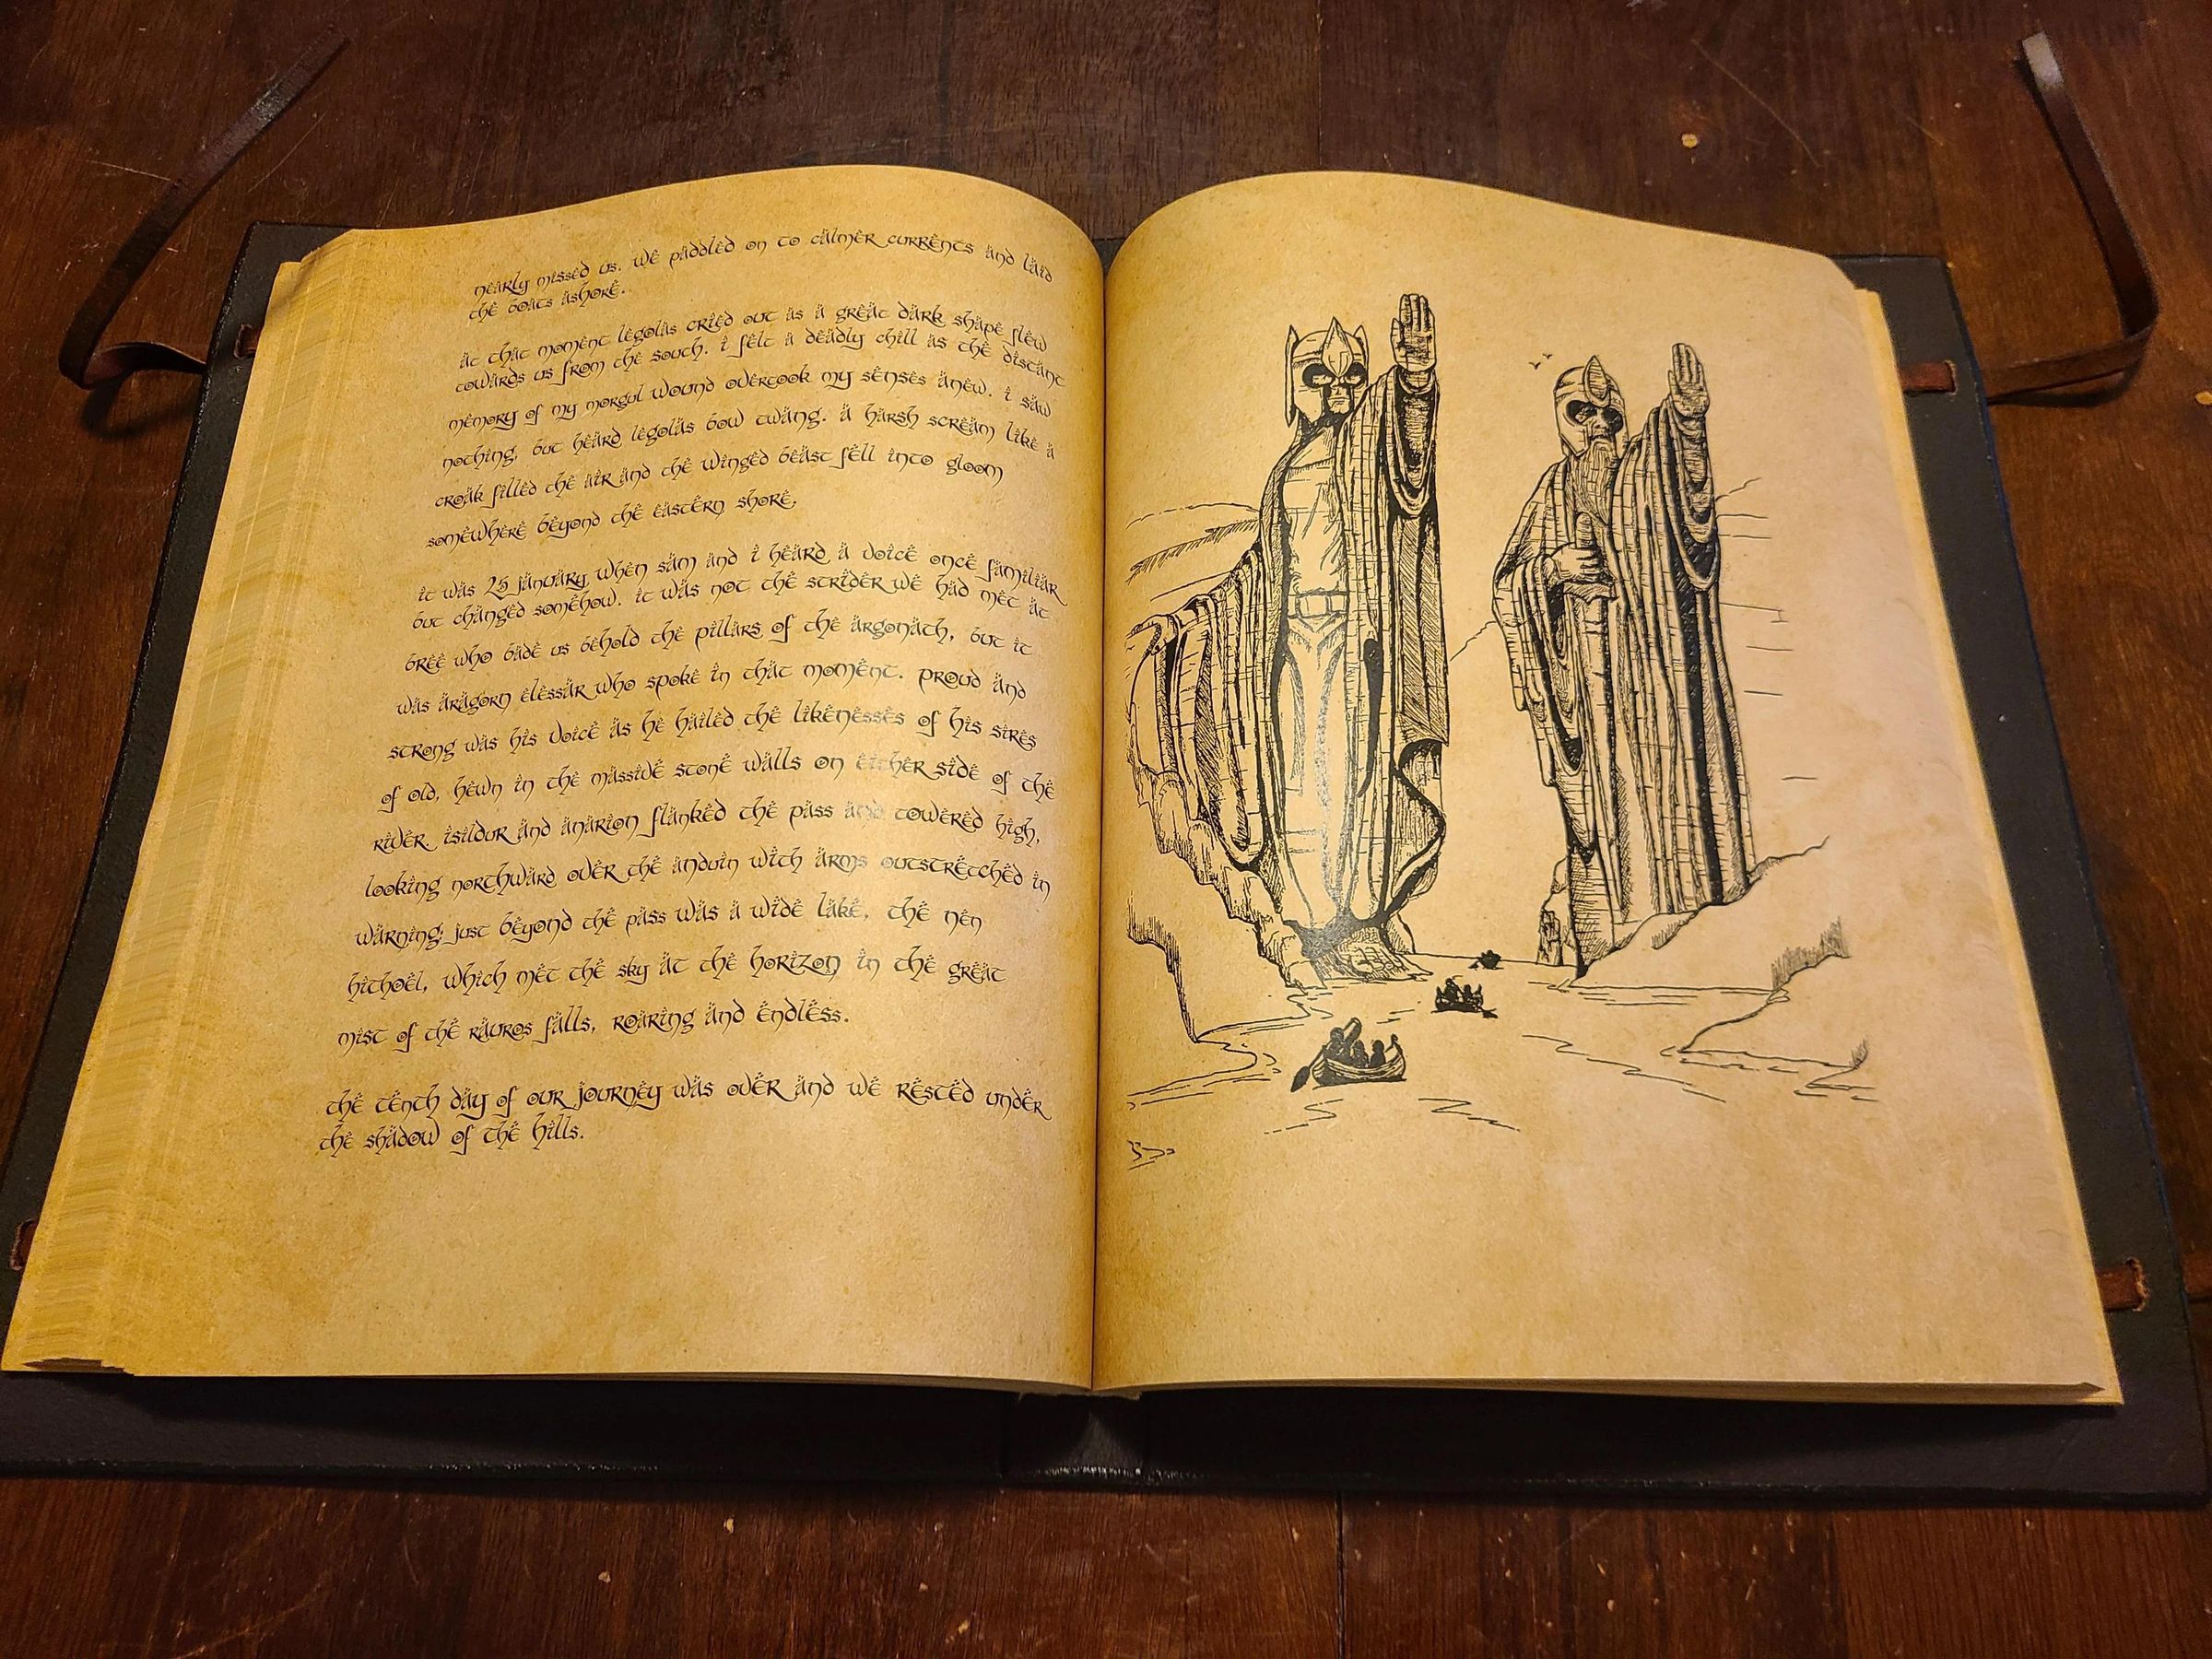 nearly missed us. we paddled on to calmer currents and laid
the boats ashore.
at that moment legolas cried out as a great dark shape flew
towards us from the south. i felt a deadly chill as the distant
memory of my morgul wound overtook my senses anew. i saw
nothing, but heard legolas bow twang. a harsh scream like a
croak filled the air and the winged beast fell into gloom
somewhere beyond the eastern shore.
it was 25 january when sam and i heard a voice once familiar
but changed somehow. it was not the strider we had met at
bree who bade us behold the pillars of the argonath, but it
was aragorn elessar who spoke in that moment. proud and
strong was his voice as he hailed the likenesses of his sires
of old, hewn in the massive stone walls on either side of the
river. isildur and anarion flanked the pass and towered high,
looking northward over the anduin with arms outstretched in
warning; just beyond the pass was a wide lake, the nen
hithoel, which met the sky at the horizon in the great
mist of the rauros falls, roaring and endless.
the tenth day of our journey was over and we rested under
the shadow of the hills.